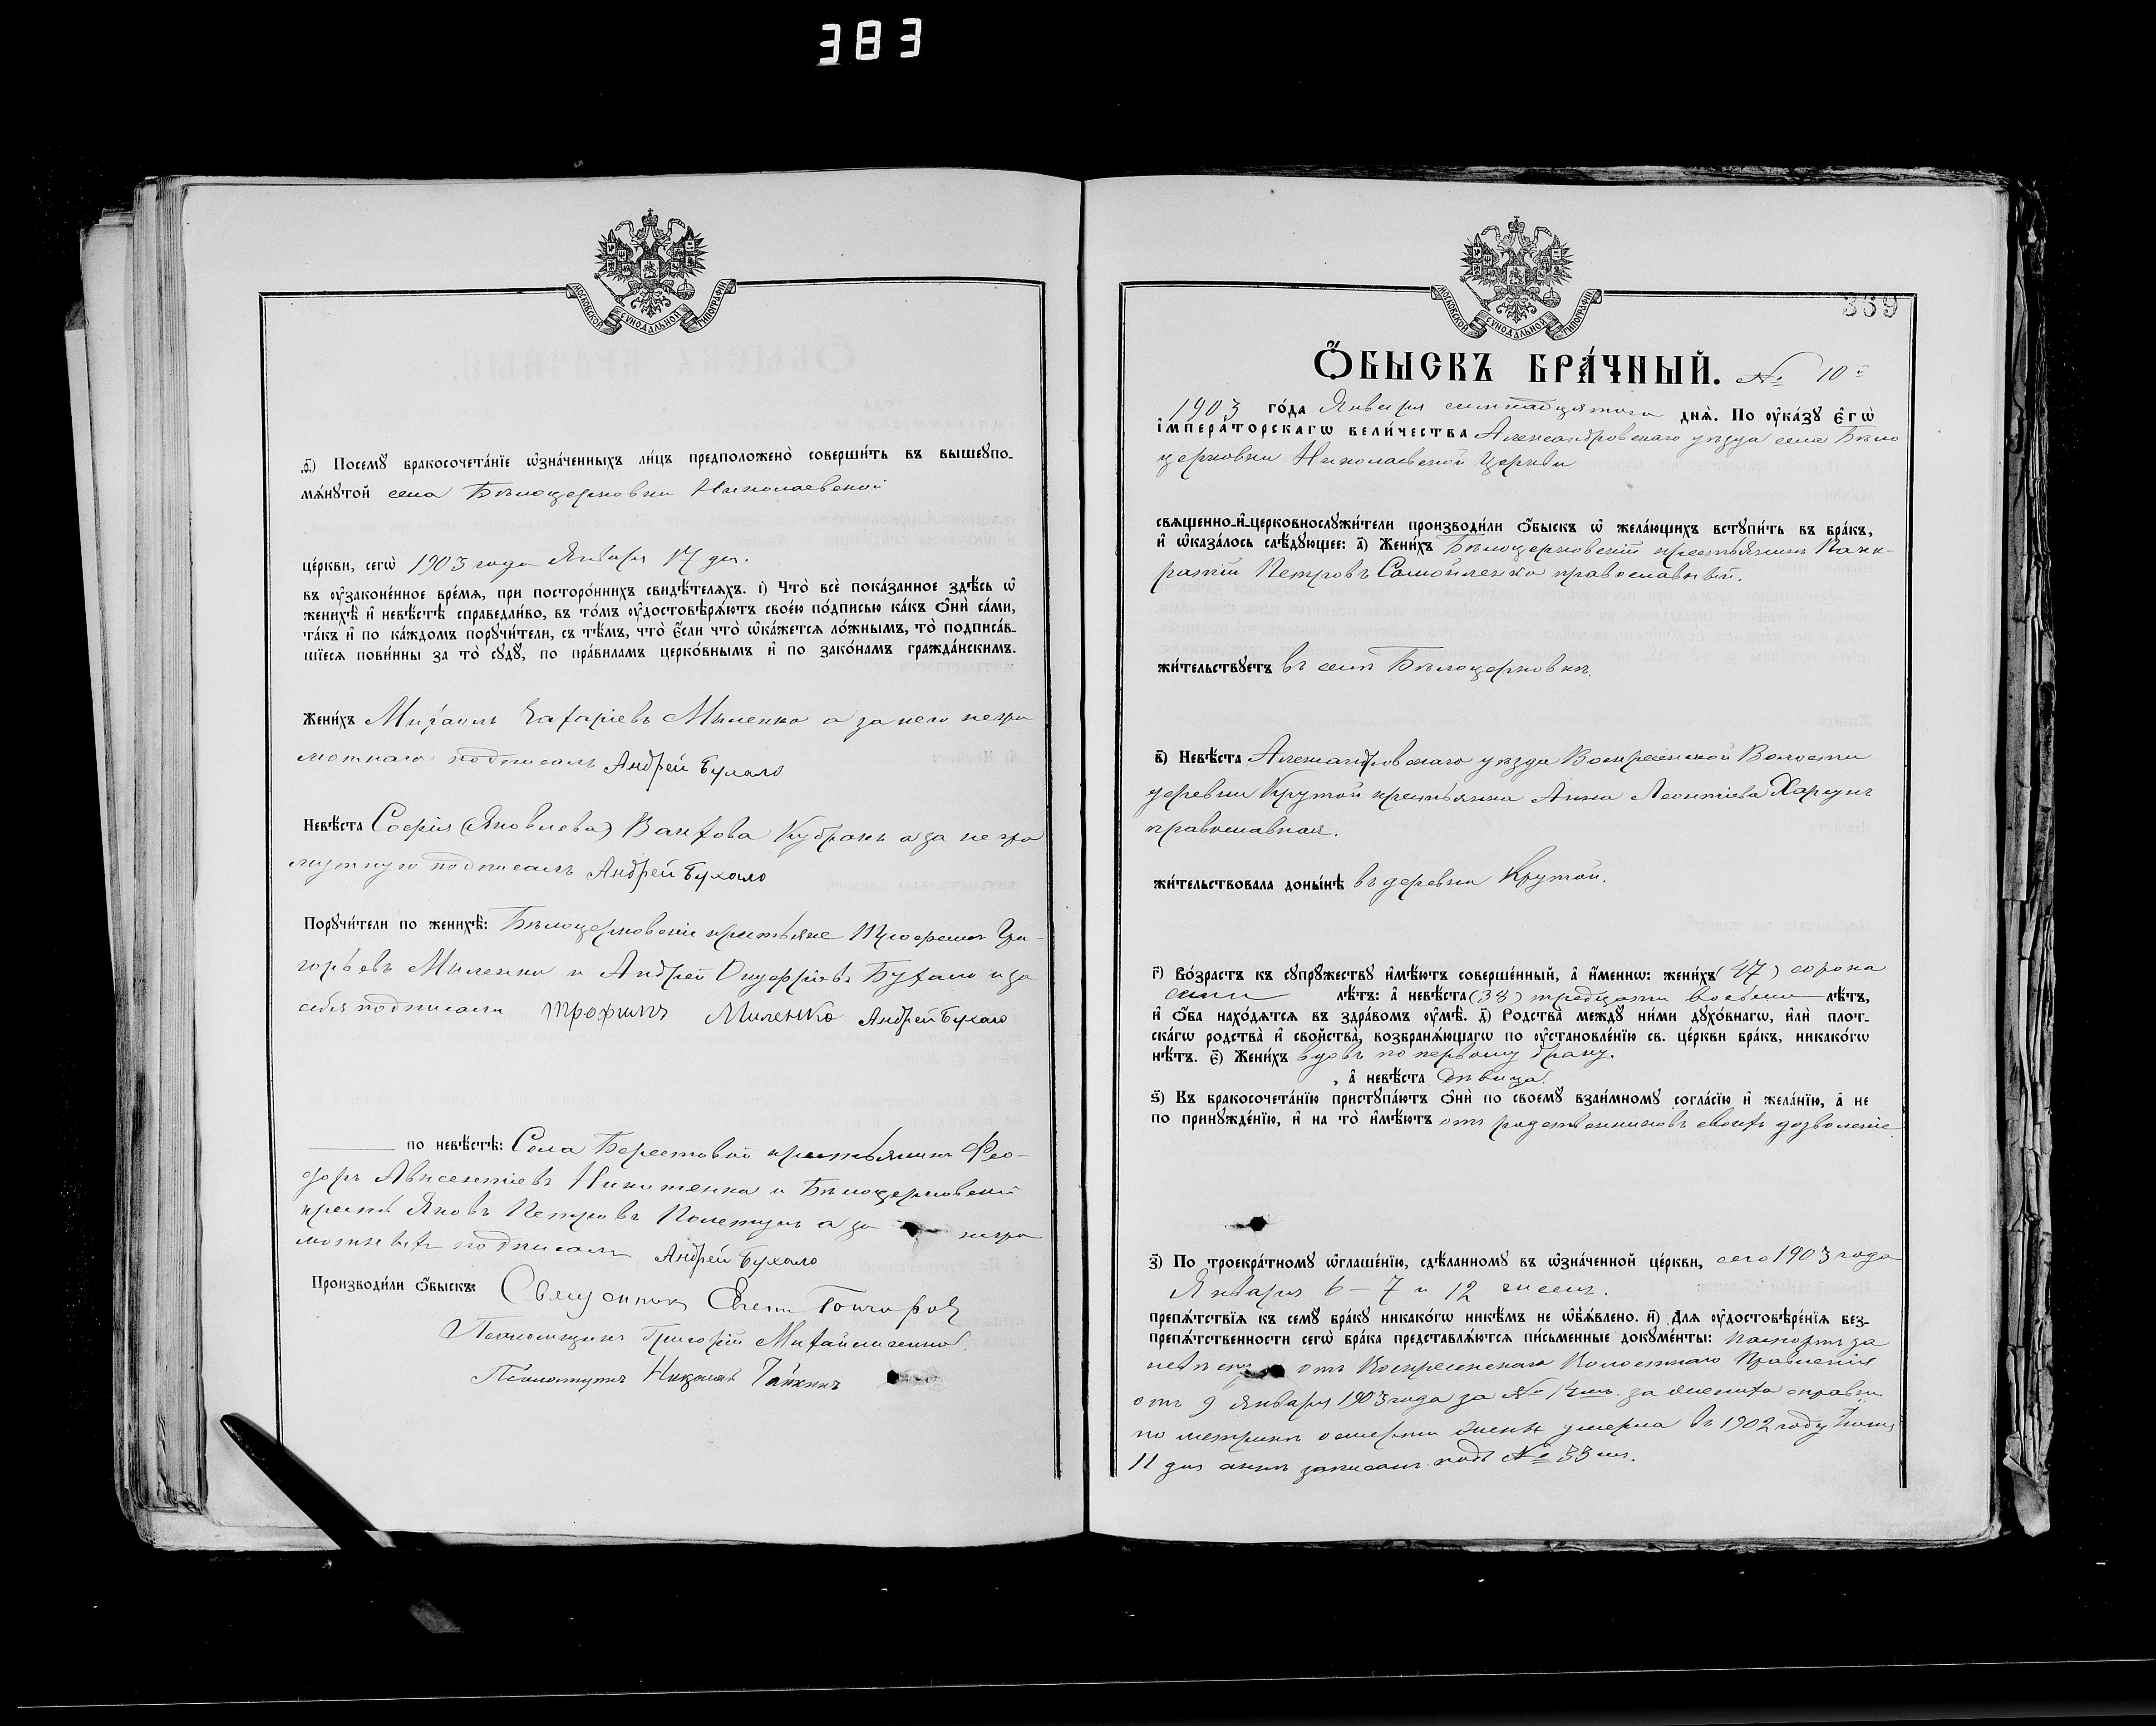 383
МОСКОВСКОЙ СУНОДАЛЬНОЙ ТИПОГРАФІИ
ѳ҃) Посемꙋ бракосочета́нїе ѡ҆зна́ченныхъ ли́цъ предположено̀ соверши́ть въ вышеупо-
мѧ́нꙋтой села Бѣлоцерковки Николаевской
це́ркви, сегѡ̀ 1903 года Января 17 дня.
въ оу҆зако́ненное вре́мѧ, при посторо́ннихъ свидѣ́телѧхъ. і҃) Что̀ всѐ пока́занное здѣ́сь ѡ҆
женихѣ̀ и҆ невѣ́стѣ справедли́во, въ то́мъ оу҆достовѣрѧ́ютъ свое́ю по́дписью ка́къ ѻ҆нѝ са́ми,
та́къ и҆ по ка́ждомъ порꙋчи́тели, съ тѣ́мъ, что̀ є҆́сли что̀ ѡ҆ка́жетсѧ ло́жнымъ, то̀ подписа́в-
шїесѧ пови́нны за то̀ сꙋдꙋ̀, по пра́виламъ церко́внымъ и҆ по зако́намъ гражда́нскимъ.
Жени́хъ Михаилъ Захаріевъ Миленко а за него негра
мотнаго подписалъ Андрей Бухало
Невѣ́ста Софія (Яковлева) Кубракъ а за негра
мутную подписалъ Андрей Бухало
Порꙋчи́тели по женихѣ̀: Бѣлоцерковскіе крестьяне Трофимъ Гри-
горьевъ Миленко и Андрей Онуфріевъ Бухало и за
себя подписали Трофимъ Миленко Андрей Бухало
по невѣ́стѣ: Села Берестовой крестьянинъ Фео-
доръ Авксентіевъ Никитенко и Бѣлоцерковскій
крест. Яковъ Петровъ а за негра
мотныхъ подписалъ Андрей Бухало
Производи́ли ѻ҆́быскъ: Священникъ Гончаровъ
Псаломщикъ Григорій Михайличенко
Псаломщикъ Николай
МОСКОВСКОЙ СУНОДАЛЬНОЙ ТИПОГРАФІИ
369
Ѻ҆́БЫСКЪ БРА́ЧНЫЙ. № 10й
1903 го́да Января семнадцятого днѧ̀. По оу҆ка́зꙋ є҆гѡ̀
і҆мпера́торскагѡ вели́чества Александровскаго уѣзда села Бѣло
церковки Николаевской Церкви
свѧще́нно-и҆-церковнослꙋжи́тели производи́ли ѻ҆́быскъ ѡ҆ жела́ющихъ встꙋпи́ть въ бра́къ,
и҆ ѡ҆каза́лось слѣ́дꙋющее: а҃) Жени́хъ Бѣлоцерковскій крестьянинъ Панк-
ратій Петровъ Самойленко православный.
жи́тельствꙋетъ въ селѣ Бѣлоцерковкѣ.
в҃) Невѣ́ста Александровскаго уѣзда Воскресенской Волости
деревни Крутой крестьянка Анна Леонтіева Харунъ
православная.
жи́тельствовала доны́нѣ въ деревни Крутой.
г҃) Во́зрастъ къ сꙋпрꙋ́жествꙋ и҆мѣ́ютъ соверше́нный, а҆ и҆́меннѡ: жени́хъ (47) сорока
семи лѣ́тъ: а҆ невѣ́ста (38) тредцати восьми лѣ́тъ,
и҆ ѻ҆́ба нахо́дѧтсѧ въ здра́вомъ оу҆мѣ̀. д҃) Родства̀ междꙋ̀ ни́ми дꙋхо́внагѡ, и҆лѝ пло́т-
скагѡ родства̀ и҆ сво́йства, возбранѧ́ющагѡ по оу҆становле́нїю св. це́ркви бра́къ, никако́гѡ
нѣ́тъ. є҃) Жени́хъ вдовъ по первому браку.
, а҆ невѣ́ста дѣвица.
ѕ҃) Къ бракосочета́нїю пристꙋпа́ютъ ѻ҆нѝ по своемꙋ̀ взаи́мномꙋ согла́сїю и҆ жела́нїю, а҆ не
по принꙋжде́нїю, и҆ на то̀ и҆мѣ́ютъ отъ родственниковъ своихъ дозволеніе
з҃) По троекра́тномꙋ ѡ҆глаше́нїю, сдѣ́ланномꙋ въ ѡ҆зна́ченной це́ркви, сего 1903 года
Января 6 – 7 и 12 чиселъ.
препѧ́тствїѧ къ семꙋ̀ бра́кꙋ никако́гѡ никѣ́мъ не ѡ҆б̾ѧ́влено. и҃) Для оу҆достовѣре́нїѧ без-
препѧ́тственности сегѡ̀ бра́ка представлѧ́ютсѧ пи́сьменные докꙋме́нты: паспортъ за
невѣсту отъ Воскресенскаго Волостнаго Правленія
отъ 9 Января 1903 года за № за жениха справки
по метрикѣ о смерти жены умерла въ 1902 году
11 дня актъ записанъ подъ № 33 мъ.